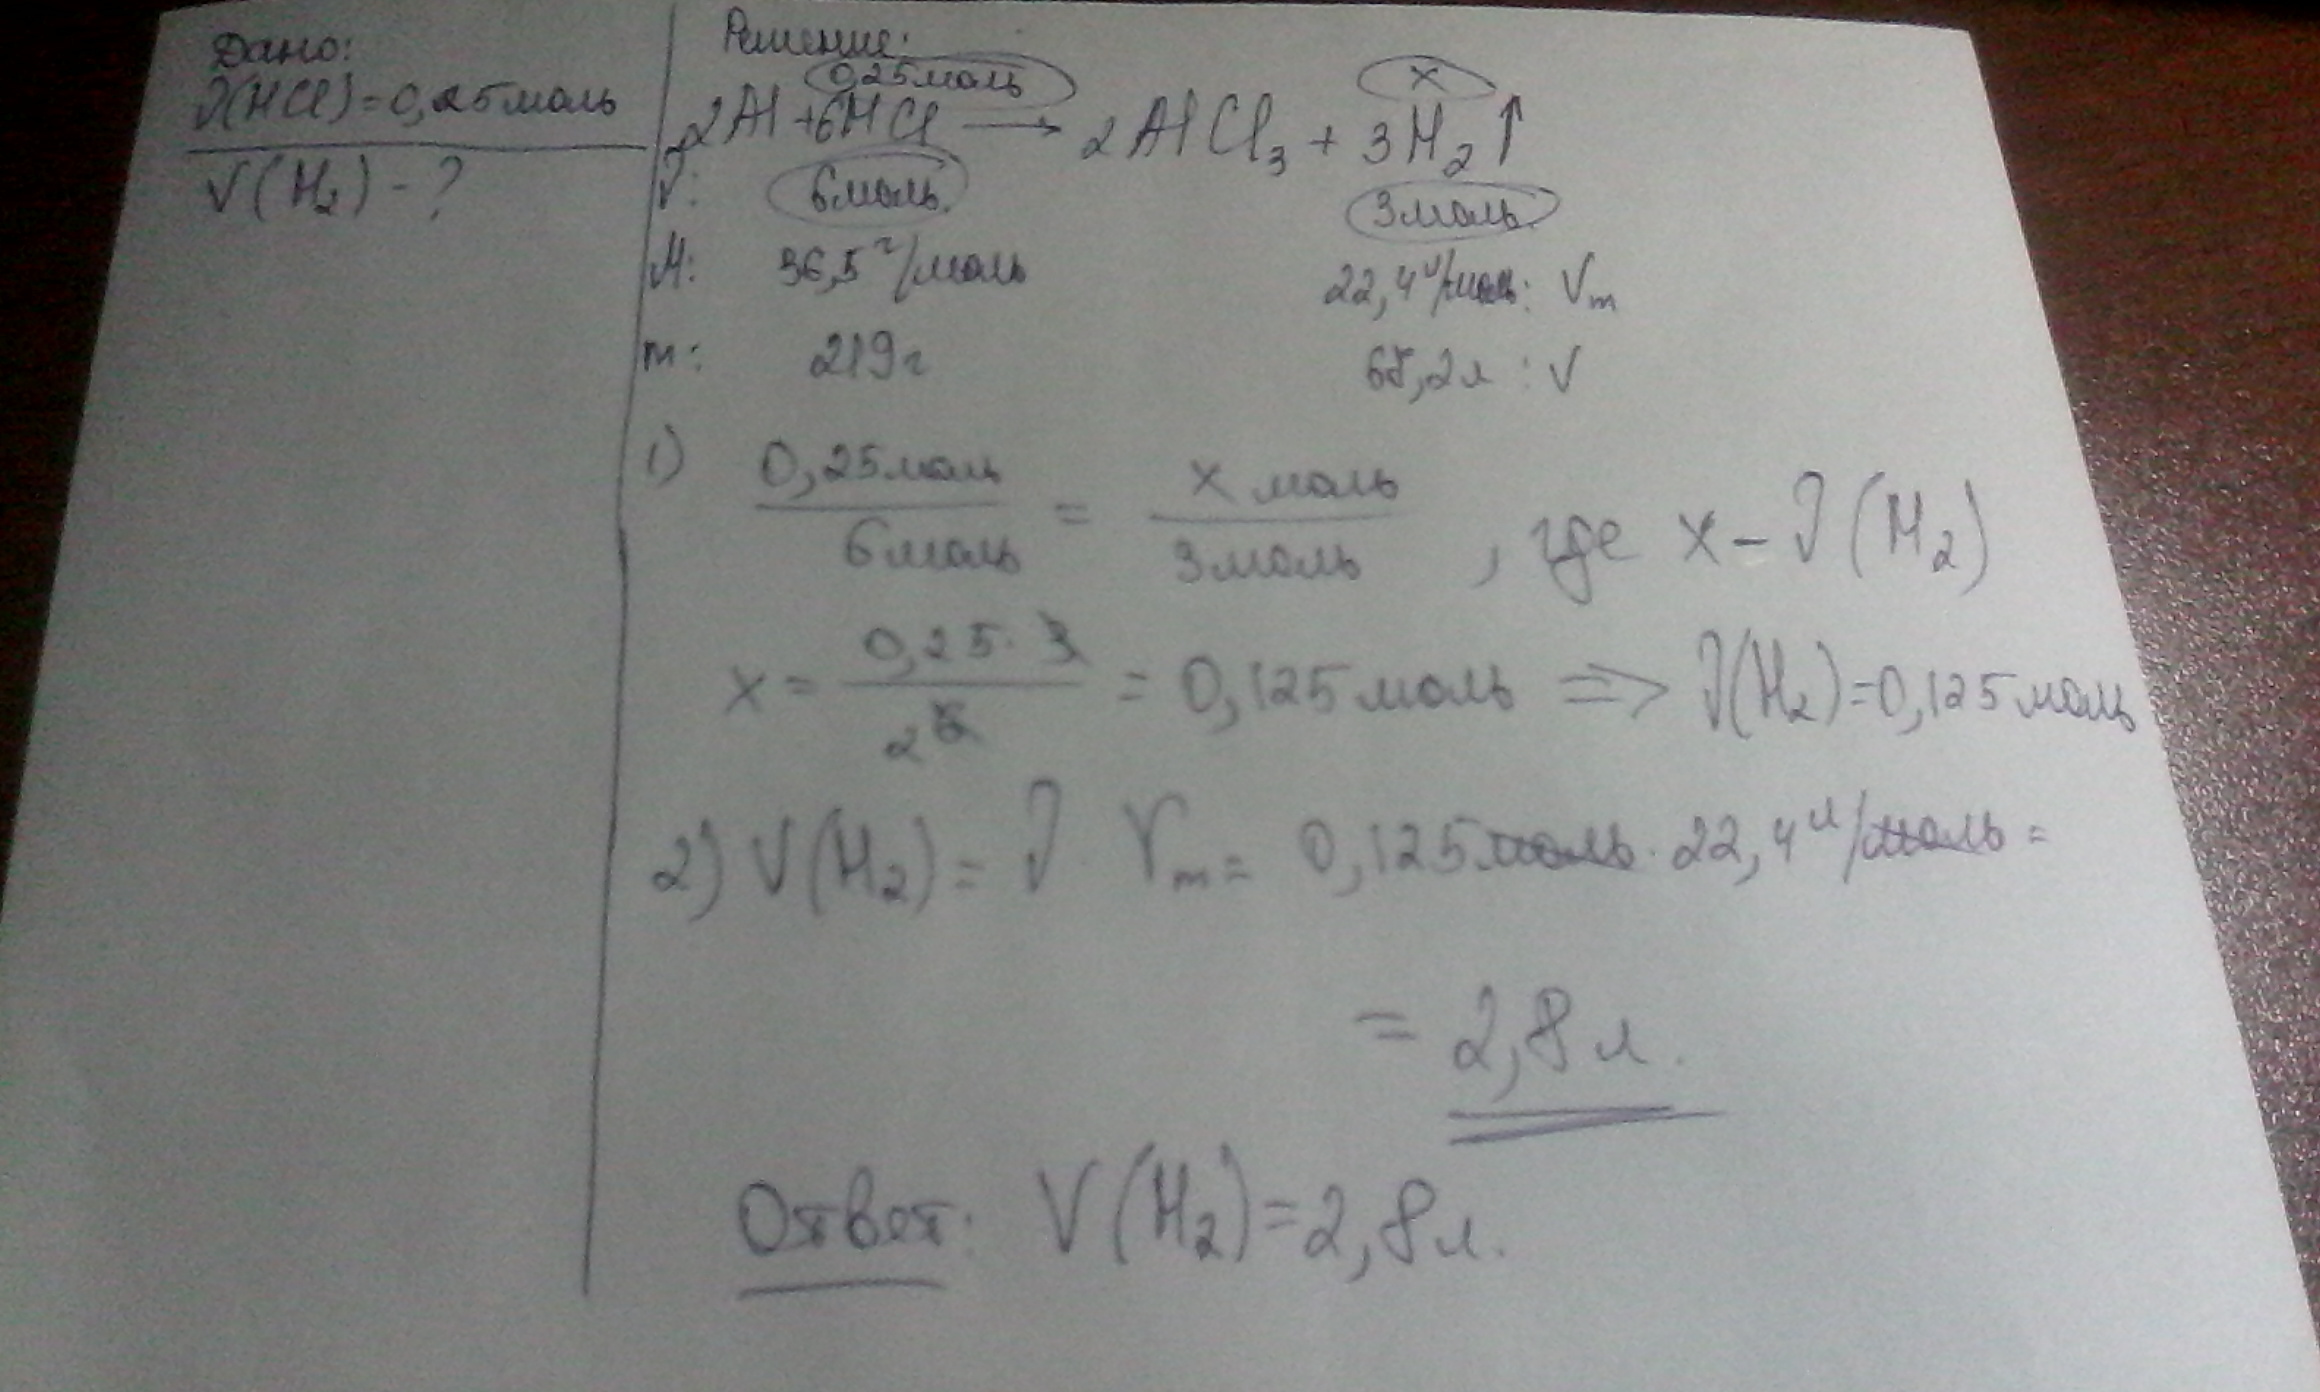 Дано:
ν(HCl)=0,25моль
V(H₂) - ?
Решение:
0,25моль x
2Al+6HCl → 2AlCl₃ + 3H₂↑
ν: 6моль 3моль
M: 36,5г/моль 22,4л/моль: Vm
m: 219г 67,2л : V
1) 0,25моль/6моль = x моль/3моль, где x - ν(H₂)
x = 0,25·3/6 2 = 0,125моль ⟹ ν(H₂)=0,125моль
2) V(H₂) = ν·Vm = 0,125моль·22,4л/моль =
= 2,8л.
Ответ: V(H₂)=2,8л.